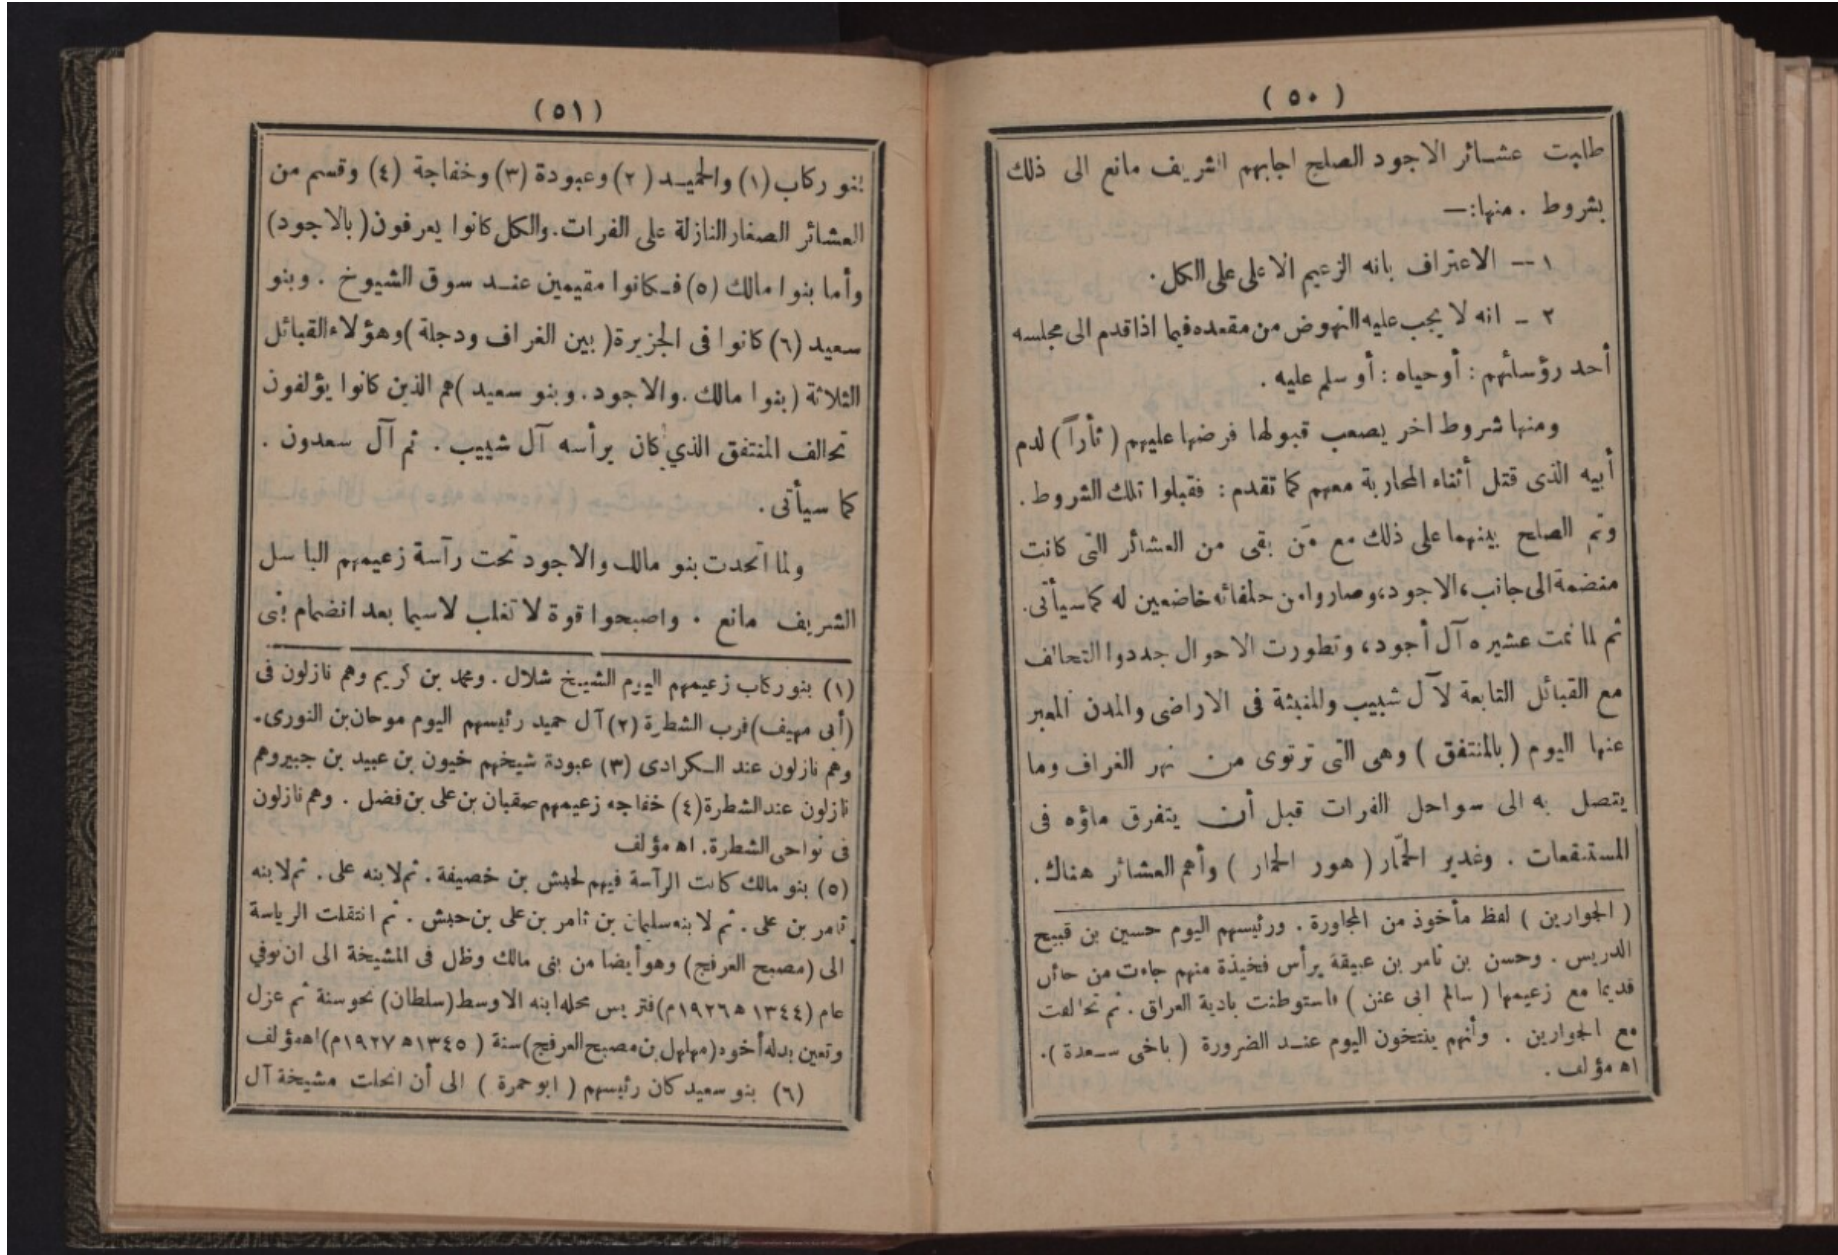 ( ٥٠ )
طلبت عشائر الاجود الصلح اجابهم الشريف مانع الى ذلك
بشروط . منها :—
١ — الاعتراف بانه الزعيم الاعلى على الكل .
٢ — انه لا يجب عليه النهوض من مقعده فيما اذا قدم الى مجلسه
أحد رؤسائهم : أو حياه : أو سلم عليه .
ومنها شروط اخر يصعب قبولها فرضها عليهم ( ثأراً ) لدم
أبيه الذى قتل أثناء المحاربة معهم كما تقدم : فقبلوا تلك الشروط .
وتم الصلح بينهما على ذلك مع مَن بقى من العشائر التى كانت
منضمة الى جانب ، الاجود ، وصاروا من حلفائه خاضعين له كما سيأتى .
ثم لما نمت عشيره آل أجود ، وتطورت الاحوال جددوا التحالف
مع القبائل التابعة لآل شبيب والمنبثة فى الاراضى والمدن المعبر
عنها اليوم ( بالمنتفق ) وهى التى ترتوى من نهر الغراف وما
يتصل به الى سواحل الفرات قبل أن يتفرق ماؤه فى
المستنقعات . وغدير الحمّار ( هور الحمار ) وأهم العشائر هناك .
( الجوارين ) لفظ مأخوذ من المجاورة . ورئيسهم اليوم حسين بن قبيح
الدريس . وحسن بن ثامر بن عبيقة يرأس فخيذة منهم جاءت من حائل
قديما مع زعيمها ( سالم ابى عنن ) فاستوطنت بادية العراق . ثم تحالفت
مع الجوارين . وأنهم ينتخون اليوم عند الضرورة ( باخى سعدة ) .
اه مؤلف .
( ٥١ )
بنو ركاب (١) والحميد (٢) وعبودة (٣) وخفاجة (٤) وقسم من
العشائر الصغار النازلة على الفرات . والكل كانوا يعرفون ( بالاجود )
وأما بنوا مالك (٥) فكانوا مقيمين عند سوق الشيوخ . وبنو
سعيد (٦) كانوا فى الجزيرة ( بين الغراف ودجلة ) وهؤلاء القبائل
الثلاثة ( بنوا مالك . والاجود . وبنو سعيد ) هم الذين كانوا يؤلفون
تحالف المنتفق الذي كان يرأسه آل شبيب . ثم آل سعدون .
كما سيأتى .
ولما اتحدت بنو مالك والاجود تحت رآسة زعيمهم الباسل
الشريف مانع . واصبحوا قوة لا تغلب لاسيما بعد انضمام بنى
(١) بنو ركاب زعيمهم اليوم الشيخ شلال . ومحمد بن كريم وهم نازلون فى
(أبى مهيف) قرب الشطرة (٢) آل حميد رئيسهم اليوم موحان بن النورى .
وهم نازلون عند الكرادى (٣) عبودة شيخهم خيون بن عبيد بن جبير وهم
نازلون عند الشطرة (٤) خفاجه زعيمهم صقبان بن على بن فضل . وهم نازلون
فى نواحى الشطرة . اه مؤلف
(٥) بنو مالك كانت الرآسة فيهم لحبش بن خصيفة . ثم لابنه على . ثم لابنه
ثامر بن على . ثم لابنه سليمان بن ثامر بن على بن حبش . ثم انتقلت الرياسة
الى (مصبح العرفج) وهو أيضا من بنى مالك وظل فى المشيخة الى ان توفي
عام (١٣٤٤ ه ١٩٢٦ م) فتريس محله ابنه الاوسط (سلطان) نحو سنة ثم عزل
وتعين بدله أخوه (مهلهل بن مصبح العرفج) سنة ( ١٣٤٥ ه ١٩٢٧ م) اه مؤلف
(٦) بنو سعيد كان رئيسهم ( ابو حمرة ) الى أن انحلت مشيخة آل